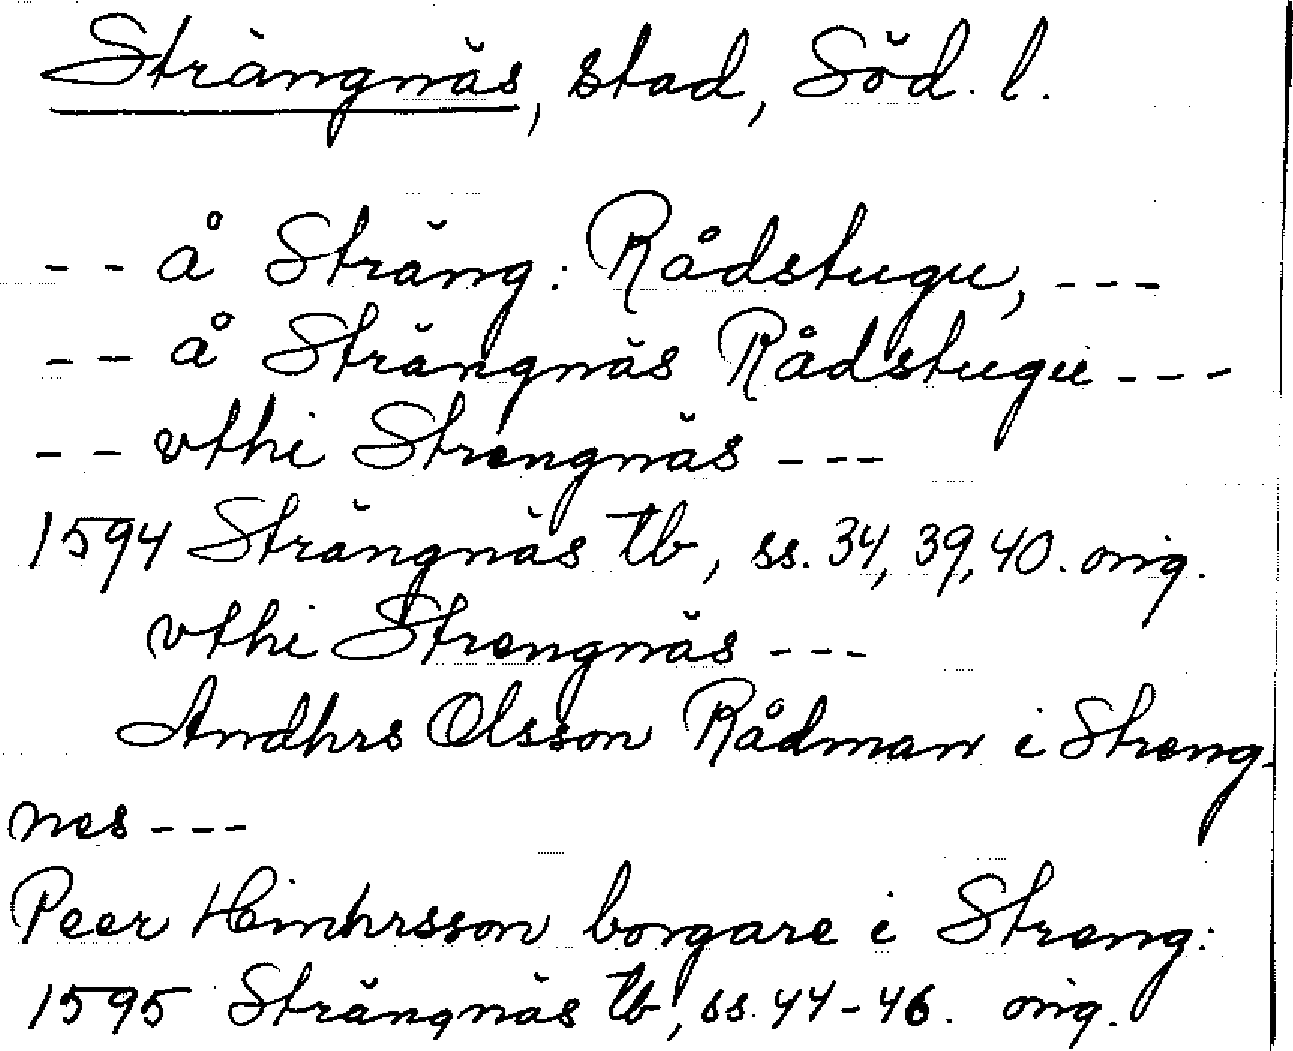 Strängnäs, stad, Söd. l.
-- å Sträng: Rådstugu, ---
-- å Strängnäs Rådstugu ---
-- vthi Strengnäs ---
1594 Strängnäs tb, ss. 34, 39, 40. orig.
vthi Strengnäs ---
Andhrs Olsson Rådman i Streng-
nes ---
Peer Hinhrsson borgare i Streng:
1595 Strängnäs tb, ss. 44-46. orig.